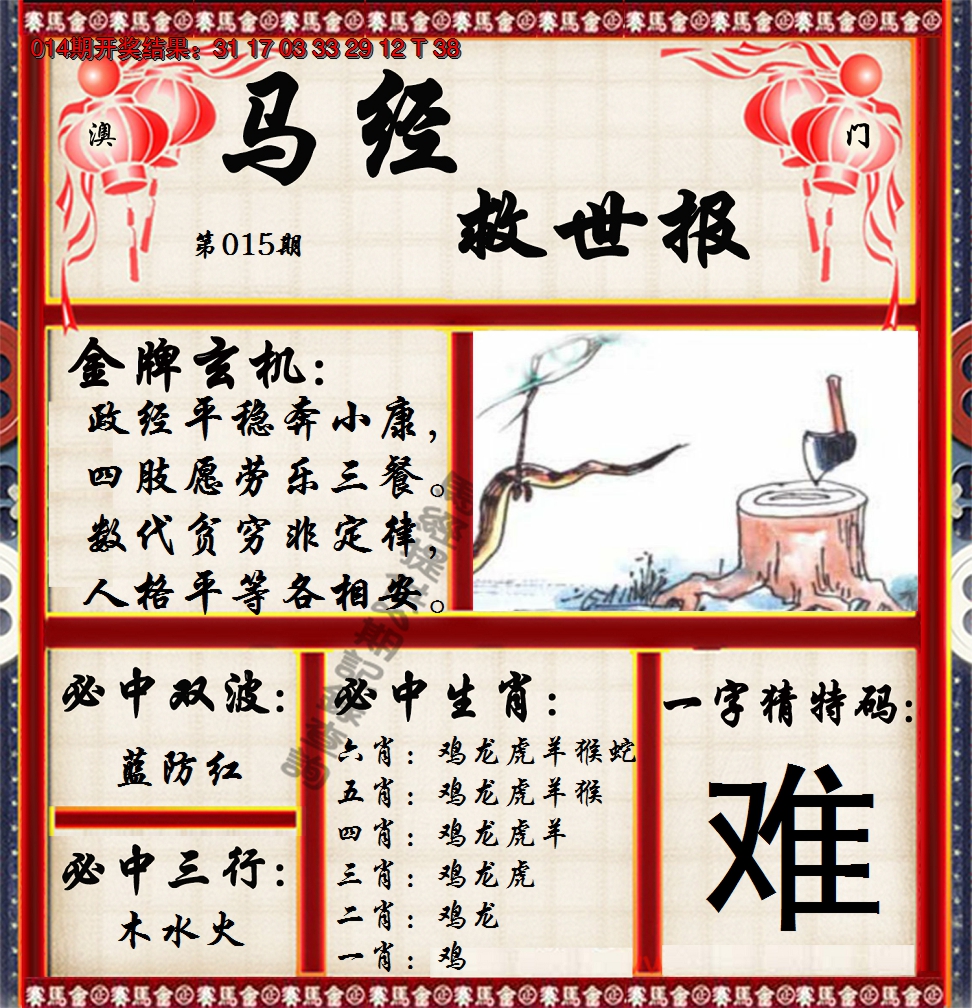 014期开奖结果：31 17 03 33 29 12 T 38
澳
门
马经
救世报
第015期
金牌玄机：
政经平稳奔小康，
四肢愿劳乐三餐。
数代贫穷非定律，
人格平等各相安。
必中双波：
蓝防红
必中三行：
木水火
必中生肖：
六肖：鸡龙虎羊猴蛇
五肖：鸡龙虎羊猴
四肖：鸡龙虎羊
三肖：鸡龙虎
二肖：鸡龙
一肖：鸡
一字猜特码：
难